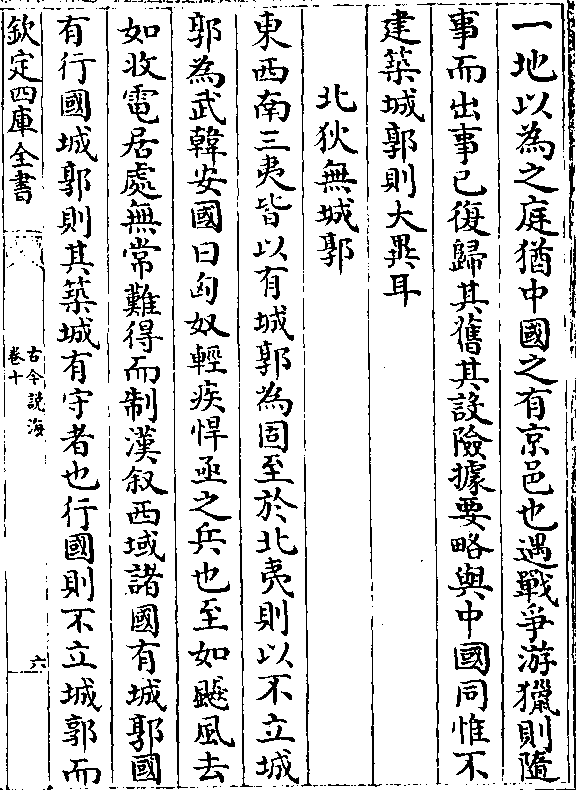 一地以為之庭猶中國之有京邑也遇戰爭游獵則隨
事而出事已復歸其舊其設險據要略與中國同惟不
建築城郭則大異耳
北狄無城郭
東西南三夷皆以有城郭為固至於北夷則以不立城
郭為武韓安國曰匈奴輕疾悍亟之兵也至如飈風去
如收電居處無常難得而制漢叙西域諸國有城郭國
有行國城郭則其築城有守者也行國則不立城郭而
欽定四庫全書
古今說海
卷十
六